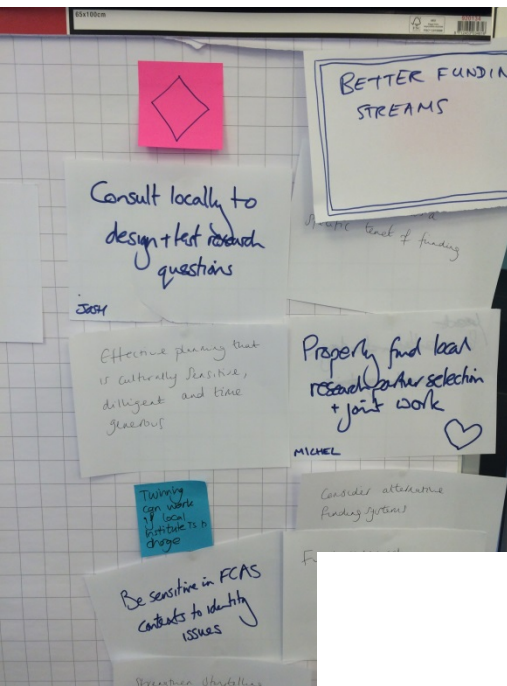 65x100cm
BETTER FUNDIN
STREAMS
Consult locally to
design + test research
questions
JOSH
specific tenet of funding
Effective planning that
is culturally sensitive,
dilligent and time
generous
Properly fund local
research partner selection
+ joint work
MICHEL
Twinning
can work
if local
institute is in
charge
Consider alternative
funding systems
Be sensitive in FCAS
contexts to identity
issues
Strengthen storytelling